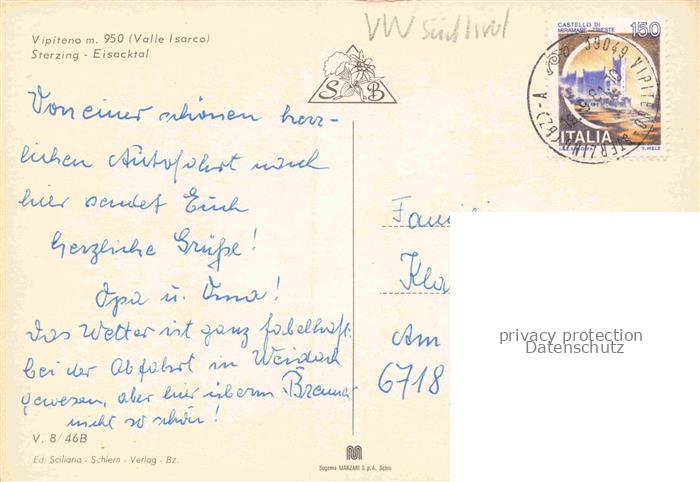 VW Südtirol
Vipiteno m. 950 (Valle Isarco)
Sterzing - Eisacktal
S B
CASTELLO DI
MIRAMARE - TRIESTE
150
ITALIA
39049 VIPITENO
STERZING (BZ) - A
Von einer schönen herr-
lichen Autofahrt nach
hier sendet Euch
herzliche Grüße!
Opa u. Oma!
Das Wetter ist ganz fabelhaft.
bei der Abfahrt in Weidach
gewesen, aber hier überm Brenner
nicht so schön!
Famili
Kla
Am
6718
privacy protection
Datenschutz
V. 8/46B
Ed. Sciliaria - Schlern - Verlag - Bz.
Sagema MANZARI S.p.A. Schio